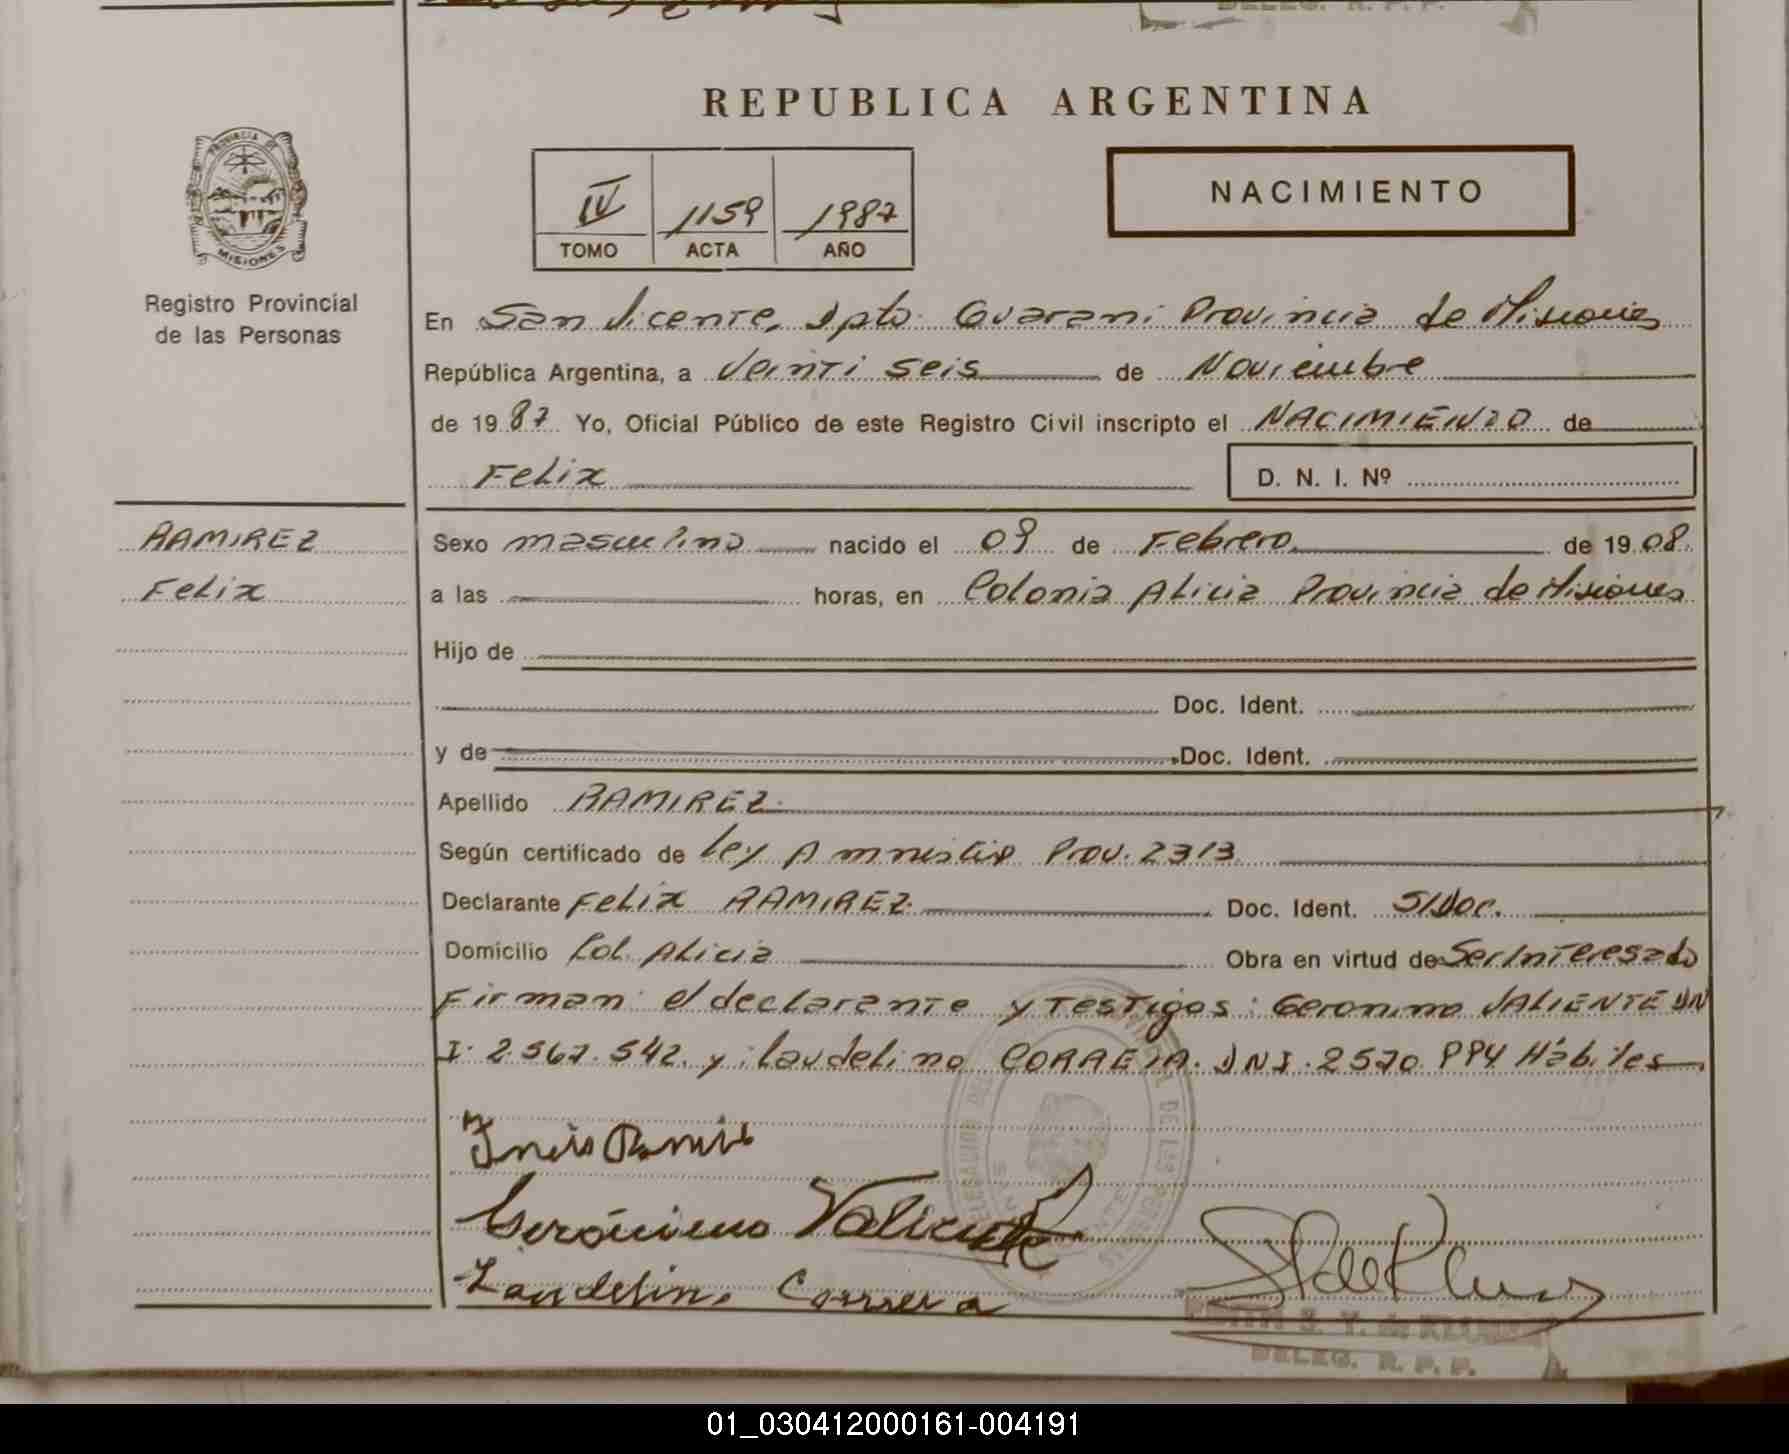 REPUBLICA ARGENTINA
PROVINCIA DE
MISIONES
Registro Provincial
de las Personas
IV 1159 1987
TOMO ACTA AÑO
NACIMIENTO
En San Vicente, Dpto Guarani Provincia de Misiones
República Argentina, a Veinti seis de Noviembre
de 1987 Yo, Oficial Público de este Registro Civil inscripto el NACIMIENTO de
Felix D. N. I. Nº
RAMIREZ
Felix
Sexo masculino nacido el 09 de Febrero de 1908
a las horas, en Colonia Alicia Provincia de Misiones
Hijo de
Doc. Ident.
y de Doc. Ident.
Apellido RAMIREZ
Según certificado de Ley Amnistia Prov. 2313
Declarante Felix RAMIREZ Doc. Ident. S/Doc.
Domicilio Col. Alicia Obra en virtud de Ser Interesado
Firman el declarante y Testigos: Geronimo VALIENTE DN
I. 2.567.542. y Laudelino CORREIA. DNI. 2570 PPY Hábiles
Gerónimo Valiente
Laudelin. Correia
DELEG. R. P. P.
01_030412000161-004191